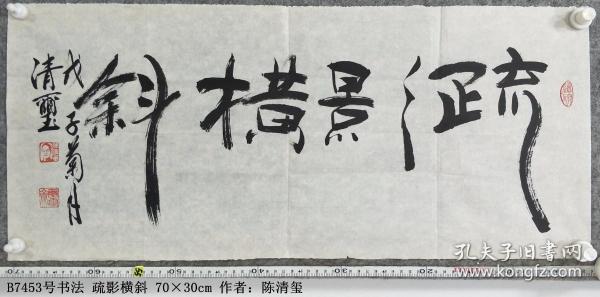 疏影横斜
戊子菊月
清璽
孔夫子旧书网
B7453号书法 疏影横斜 70×30cm 作者：陈清玺